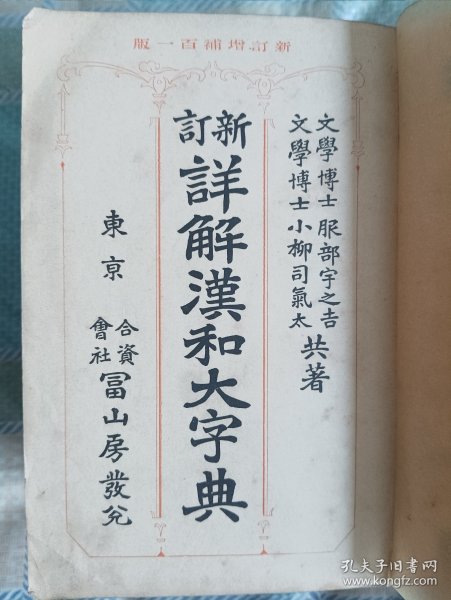 新訂增補百一版
文學博士 服部宇之吉
文學博士 小柳司氣太
共著
新訂
詳解漢和大字典
東京
合資會社
冨山房發兌
孔夫子旧书网
www.kongfz.com